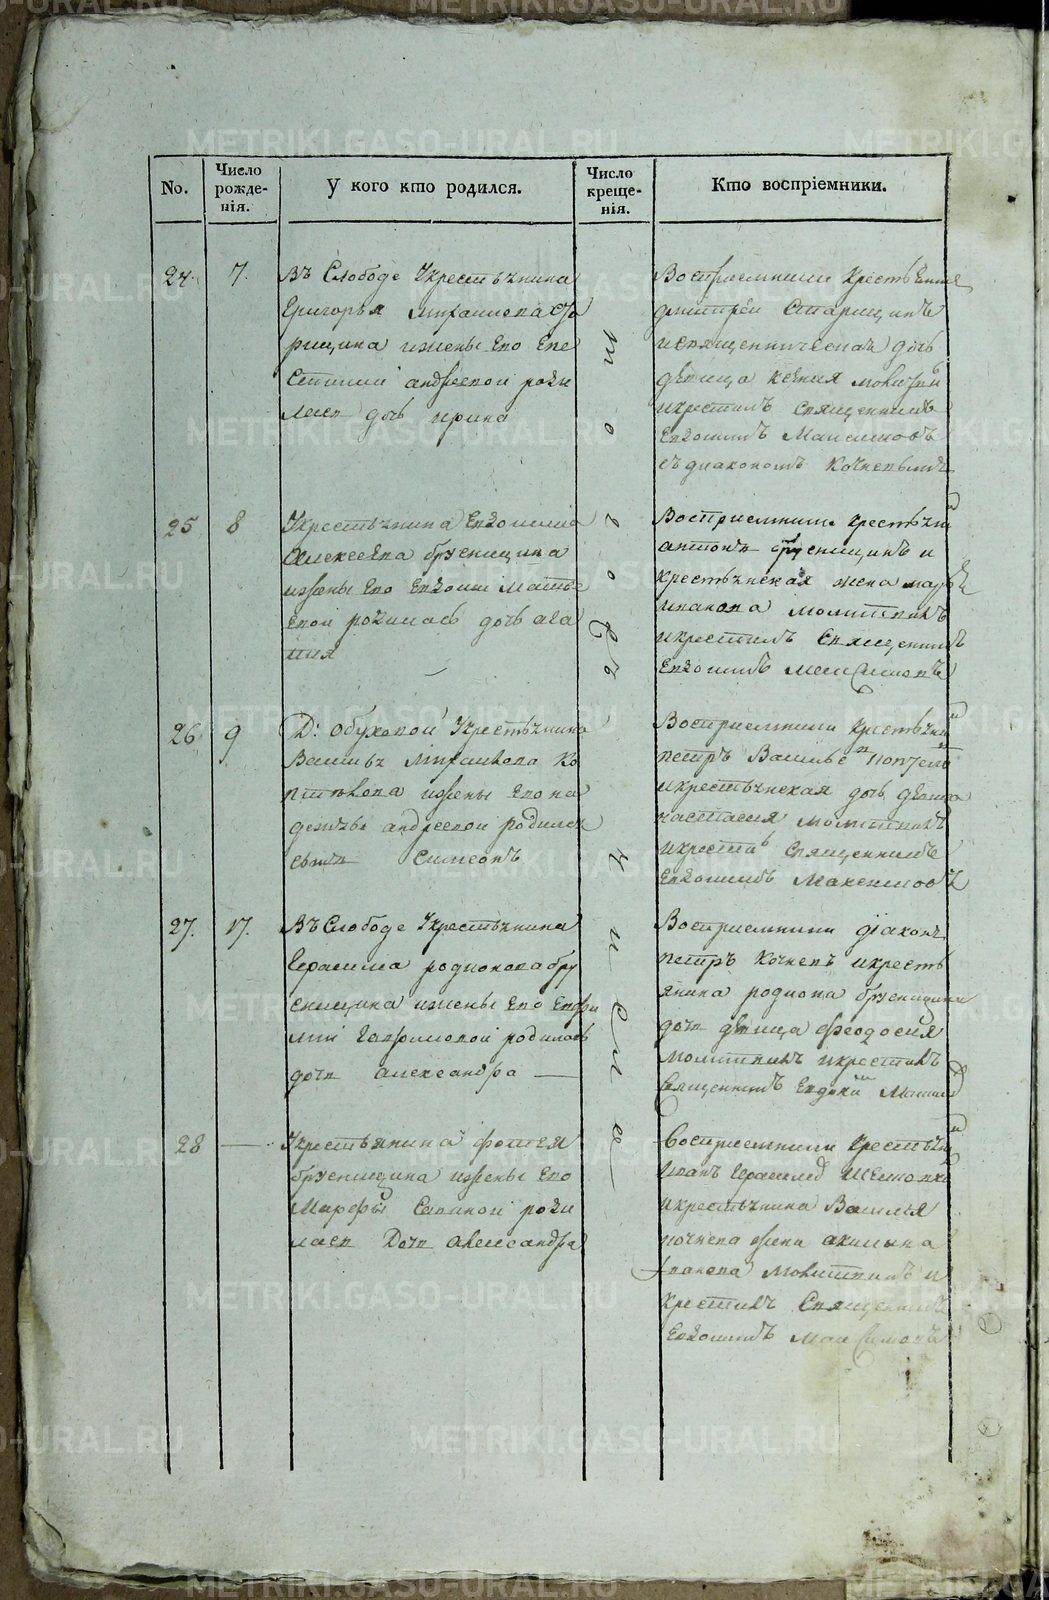 METRIKI.GASO-URAL.RU
No.
Число рожде-нія.
У кого кто родился.
Число креще-нія.
Кто воспріемники.
24. 7.
Въ Слободе Укрестьянина
Григорья
рищина ижены Его Епе
Стимии андреевой роди
лась дочь ирина
Восприемники крестьянинъ
дмитреи Старицинъ
исвященническая дочь
девица ксения молитвы
икрестилъ Священникъ
Евдокимъ Максимовъ
съ диакономъ Кочневымъ
25 8
Укрестьянина Евдокима
Алексеева брусницина
ижены Его Евдокии Матве
евой родилась дочь ага
пия
Восприемники крестьяни
антонъ брусницинъ и
крестьянская жена марья
иванова молитвилъ
икрестилъ Священникъ
Евдокимъ Максимовъ
26. 9
Д: обуховой Укрестьянина
Василья Михаилова Ко
птялова ижены Его на
дежды андреевой родился
сынъ Симеонъ
Восприемники крестьяни
петръ Васильевъ
икрестьянская дочь девица
настасия молитвилъ
икрестилъ Священникъ
Евдокимъ Максимовъ
27. 17.
Въ Слободе Укрестьянина
Герасима родионова бру
сницина ижены Его Евфи
мии родилась
дочь александра
Восприемники діаконъ
петръ Кочневъ икресть
янина родиона брусницина
дочь девица феодосия
молитвилъ икрестилъ
Священникъ Евдокимъ
28 —
Укрестьянина фотея
брусницина ижены Его
Марфы Савиной роди
лась Дочь александра
Восприемники крестьяни
Иванъ
икрестьянина Василья
кочнева жена акилина
иванова молитвилъ и
крестилъ Священникъ
Евдокимъ Максимовъ
того жъ числа